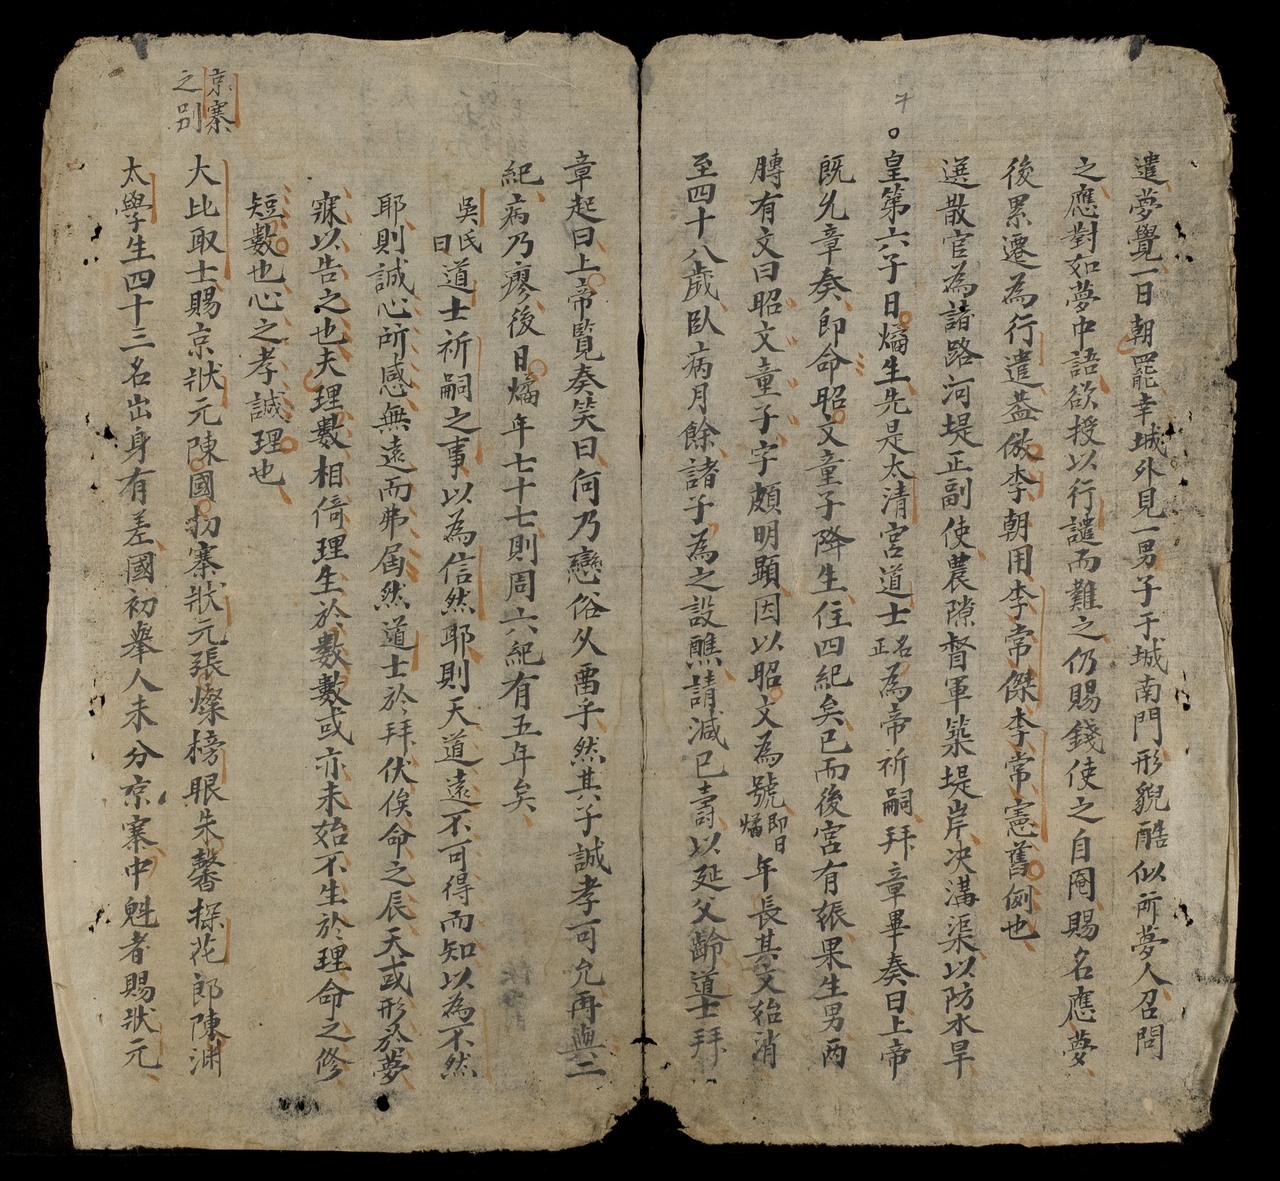 遣夢覺一日朝罷幸城外見一男子于城南門形貌酷似所夢人召問
之應對如夢中語欲授以行譴而難之仍賜錢使之自閹賜名應夢
後累遷為行遣蓋倣李朝用李常傑李常憲舊例也
選散官為諸路河堤正副使農隙督軍築堤岸决溝渠以防水旱
皇第六子日燏生先是太清宮道士名正為帝祈嗣拜章畢奏曰上帝
既允章奏即命昭文童子降生住四紀矣已而後宮有娠果生男兩
膊有文曰昭文童子字頗明顯因以昭文為號即日燏年長其文始消
至四十八歲臥病月餘諸子為之設醮請減已壽以延父齡道士拜
章起曰上帝覧奏笑曰何乃戀俗久畱乎然其子誠孝可允再與二
紀病乃廖後日燏年七十七則周六紀有五年矣
吳氏曰道士祈嗣之事以為信然耶則天道遠不可得而知以為不然
耶則誠心所感無遠而弗屆然道士於拜伏俟命之辰天或形於夢
寐以告之也夫理數相倚理生於數數或亦未始不生於理命之修
短數也心之孝誠理也
京寨
之別
大比取士賜京狀元陳國扐寨狀元張燦榜眼朱馨探花郎陳淵
太學生四十三名出身有差國初舉人未分京寨中魁者賜狀元